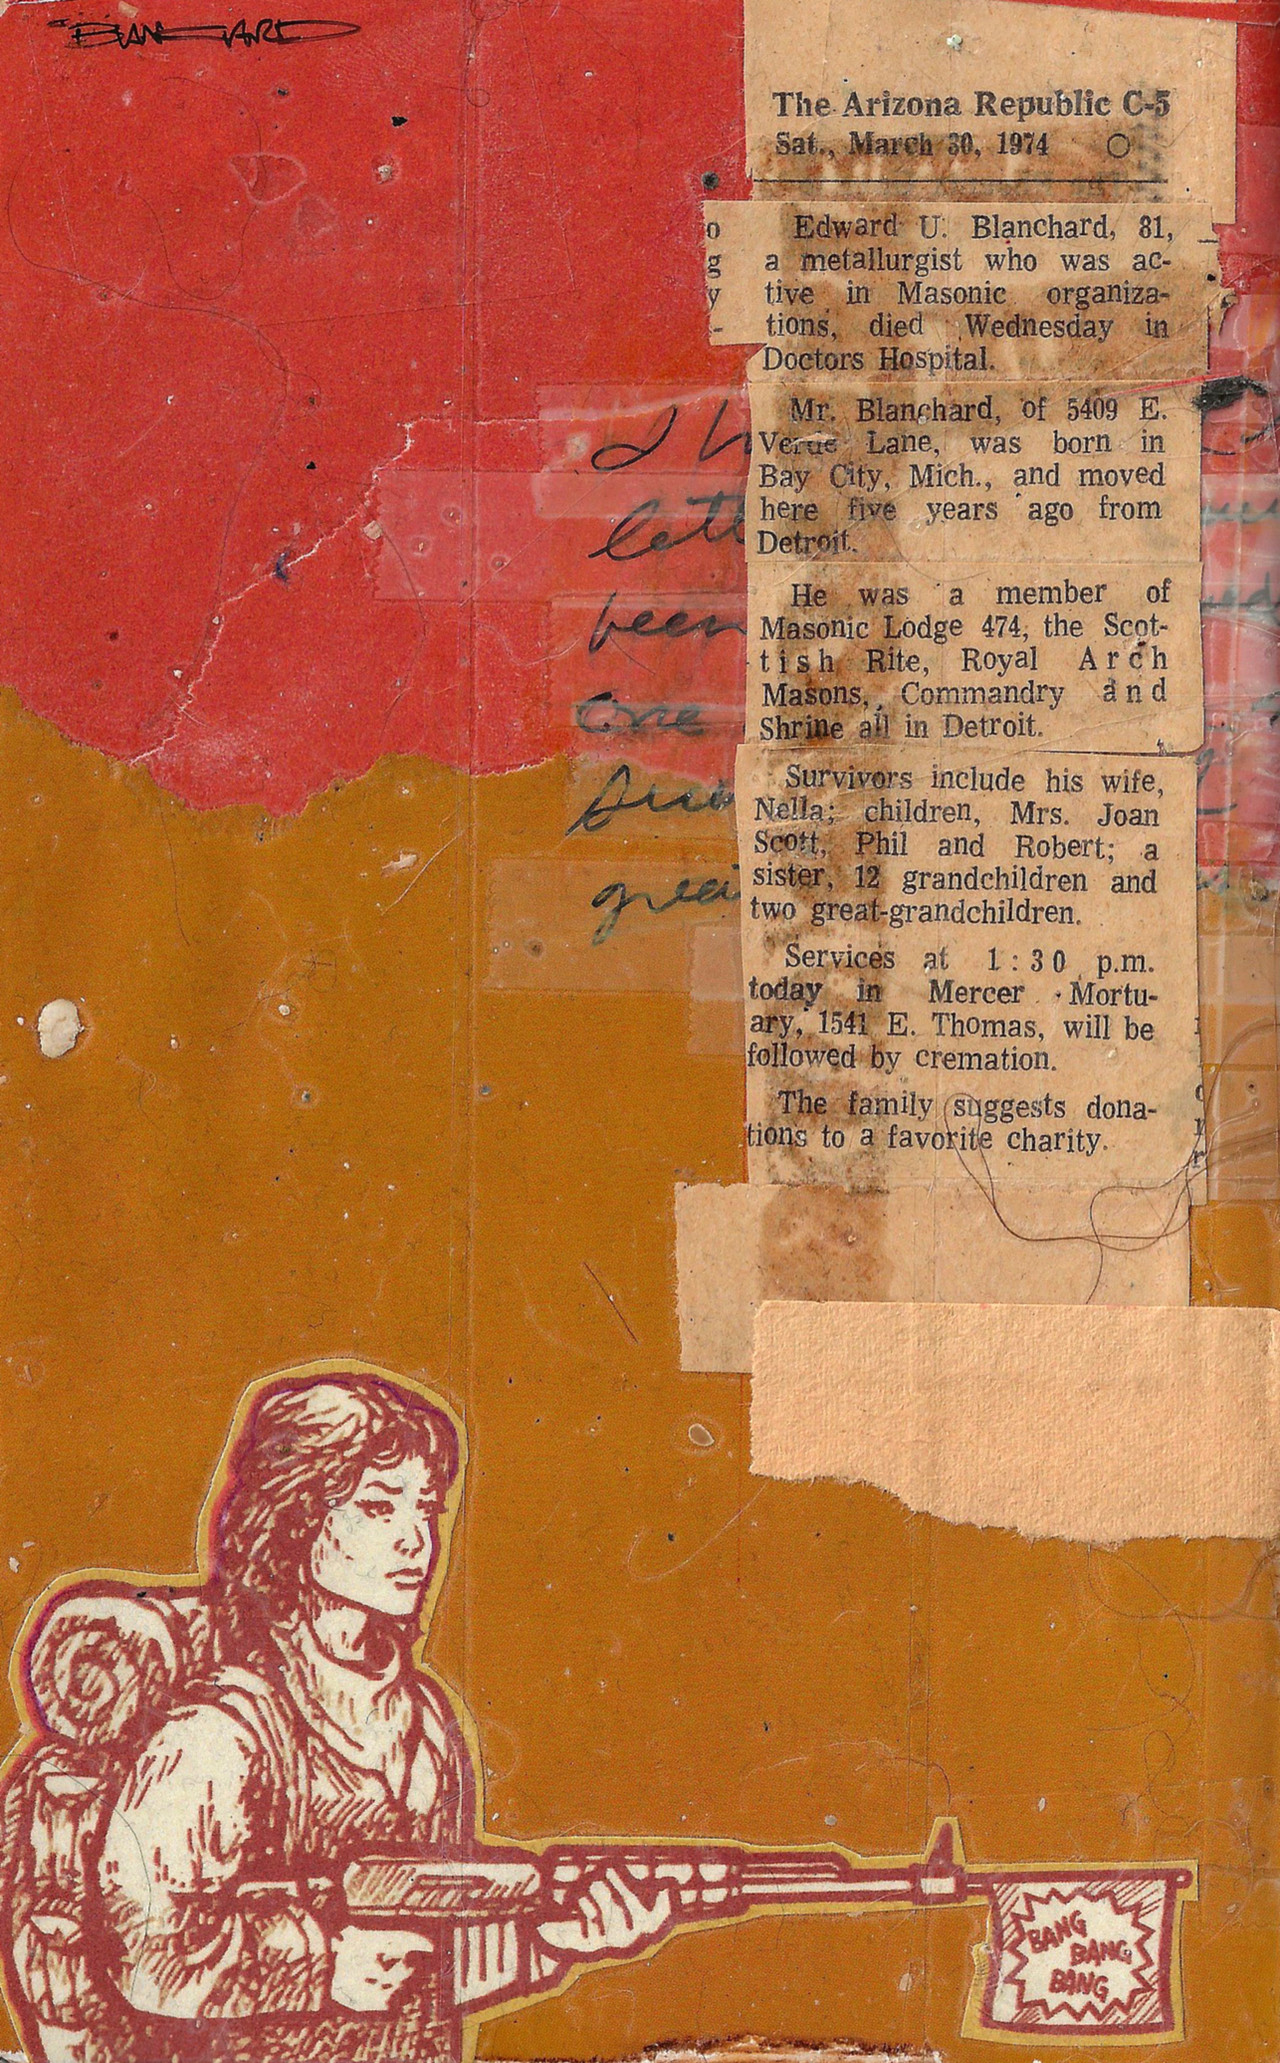 BLANCHARD
The Arizona Republic C-5
Sat., March 30, 1974
Edward U. Blanchard, 81,
a metallurgist who was ac-
tive in Masonic organiza-
tions, died Wednesday in
Doctors Hospital.
Mr. Blanchard, of 5409 E.
Verde Lane, was born in
Bay City, Mich., and moved
here five years ago from
Detroit.
He was a member of
Masonic Lodge 474, the Scot-
tish Rite, Royal Arch
Masons, Commandry and
Shrine all in Detroit.
Survivors include his wife,
Nella; children, Mrs. Joan
Scott, Phil and Robert; a
sister, 12 grandchildren and
two great-grandchildren.
Services at 1:30 p.m.
today in Mercer Mortu-
ary, 1541 E. Thomas, will be
followed by cremation.
The family suggests dona-
tions to a favorite charity.
o
g
y
-
I
been
one
BANG
BANG
BANG